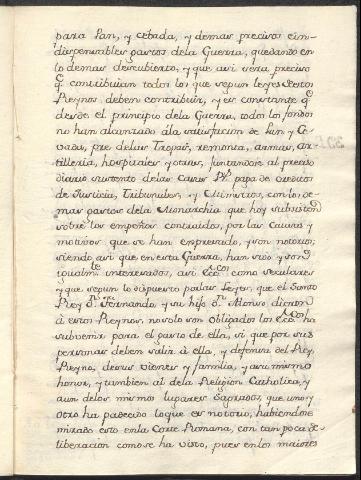 para Pan, y Cebada, y demas precisos ein-
dispensables gastos dela Guerra, quedando en
lo demas descubierto, y que asi sera preciso
q.e contribuian todos los que segun leyes destos
Reynos deben contribuir, y es constante q.e
desde el principio dela Guerra, todos los fondos
no han alcanzado ala satisfacion de Pan y Ce-
vada, pre delas Tropas, remonta, armas, ar-
tilleria, hospitales y otros, juntandose al preciso
diario sustento delas Casas R.s paga de creditos
de Justicia, Tribunales, y Ministros, con los de-
mas gastos dela Monarchia que hoy subsisten
sobre los empeños contraidos, por las causas y
motivos que se han expresado, y son notorios;
siendo asi que en esta Guerra, han sido y son
igualm.te interesados, asi Ecc.cos como seculares
y que segun lo dispuesto por las Leyes, que el Santo
Rey D.n Fernando, y su hijo D.n Alonso dieron
à estos Reynos, no solo son obligados los Ecc.cos ha
subvenir para el gasto de ella, si que por sus
personas deben salir à ella, y defensa del Rey,
Reyno, de sus vienes y familia, y aun mismo
honor, y tambien al dela Religion Catholica, y
aun delos mismos lugares Sagrados, que uno y
otro ha padecido loque es notorio, habiendose
mirado esto enla Corte Romana, con tan poca de-
liberacion como se ha visto, pues enlos maiores